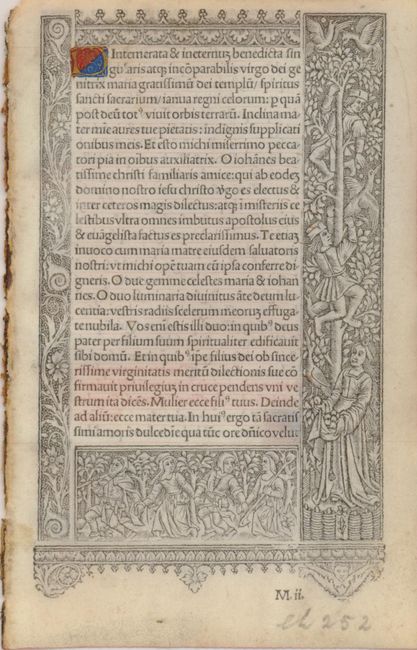 O Intemerata & ineternũ benedicta sin
gularis atq; incõparabilis virgo dei ge
nitrix maria gratissimũ dei templũ/ spiritus
sancti sacrarium/ ianua regni celorum: p quã
post deũ totꝰ viuit orbis terrarũ. Inclina ma
ter mie aures tue pietatis: indignis supplicati
onibus meis. Et esto michi miserrimo pecca-
tori pia in oibus auxiliatrix. O iohãnes bea-
tissime christi familiaris amice: qui ab eodeʒ
domino nostro iesu christo v̾go es electus &
inter ceteros magis dilectus: atq; ĩ misteriis ce
lestibus vltra omnes imbutus apostolus eius
& euãgelista factus es preclarissimus. Te etiaʒ
inuoco cum maria matre eiusdem saluatoris
nostri: vt michi opẽ tuam cũ ipsa conferre di-
gneris. O due gemme celestes maria & iohan
nes. O duo luminaria diuinitus ãte deum lu-
centia: vestris radiis scelerum meoruʒ effuga-
te nubila. Vos enĩ estis illi duo: in quibꝰ deus
pater per filium suũm spiritualiter edificauit
sibi domũ. Et in quibꝰ ipe filius dei ob since-
rissime virginitatis meritũ dilectionis sue cõ
firmauit priuilegiuʒ in cruce pendens vni ve
strum ita dicẽs. Mulier ecce filiꝰ tuus. Deinde
ad aliũ: ecce mater tua. In huiꝰ ergo tã sacratis
simi amoris dulcedie qua tũc ore dñico velut
M.ii.
eh 252